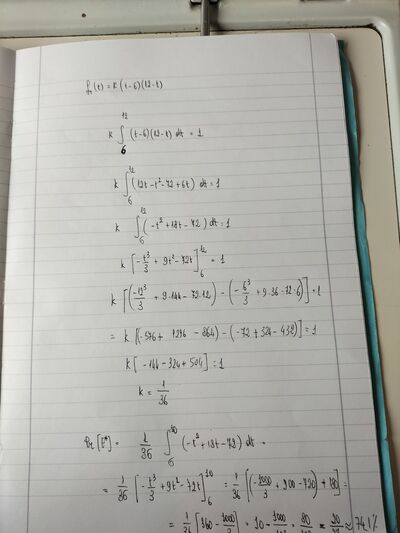 f₁(t) = k (t-6)(12-t)
k ∫₆¹² (t-6)(12-t) dt = 1
k ∫₆¹² (12t - t² - 72 + 6t) dt = 1
k ∫₆¹² (-t² + 18t - 72) dt = 1
k [-t³/3 + 9t² - 72t]₆¹² = 1
k [(-12³/3 + 9·144 - 72·12) - (-6³/3 + 9·36 - 72·6)] = 1
= k [(-576 + 1296 - 864) - (-72 + 324 - 432)] = 1
k [-144 - 324 + 504] = 1
k = 1/36
Pr [E*] = 1/36 ∫₆¹⁰ (-t² + 18t - 72) dt =
= 1/36 [-t³/3 + 9t² - 72t]₆¹⁰ = 1/36 [(-1000/3 + 900 - 720) + 180] =
= 1/36 [360 - 1000/3] = 10 - 1000/ 80/ 20/27 ≈ 74,1%